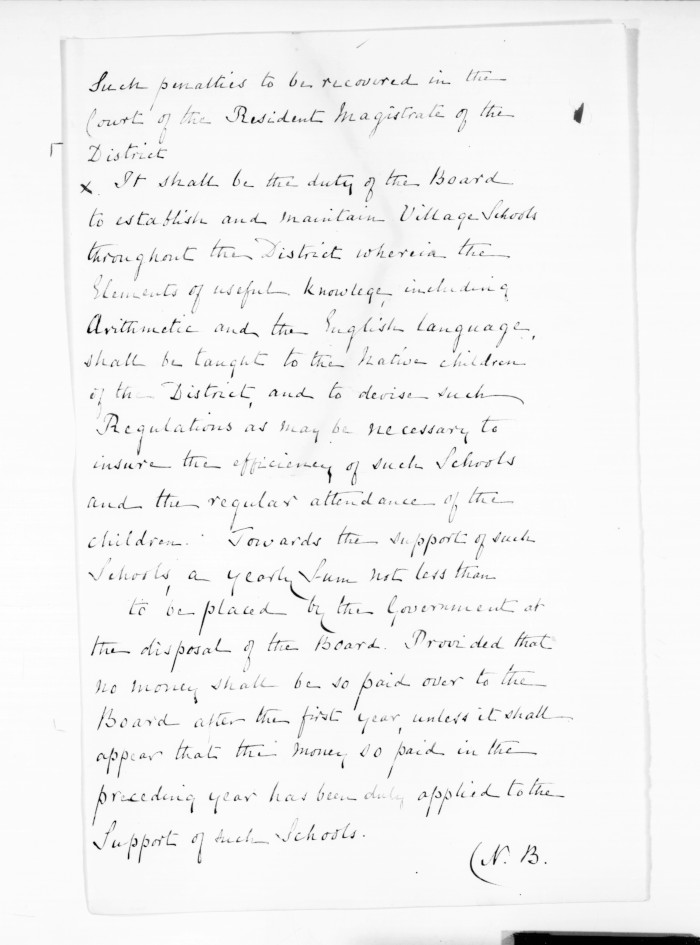 Such penalties to be recovered in the
Court of the Resident Magistrate of the
District
x. It shall be the duty of the Board
to establish and maintain Village Schools
throughout the District wherein the
Elements of useful Knowlege, including
Arithmetic and the English language,
shall be taught to the Native children
of the District, and to devise such
Regulations as may be necessary to
insure the efficiency of such Schools
and the regular attendance of the
children. Towards the support of such
Schools, a yearly Sum not less than
to be placed by the Government at
the disposal of the Board. Provided that
no money shall be so paid over to the
Board after the first year, unless it shall
appear that the money so paid in the
preceding year has been duly applied to the
Support of such Schools.
(N. B.